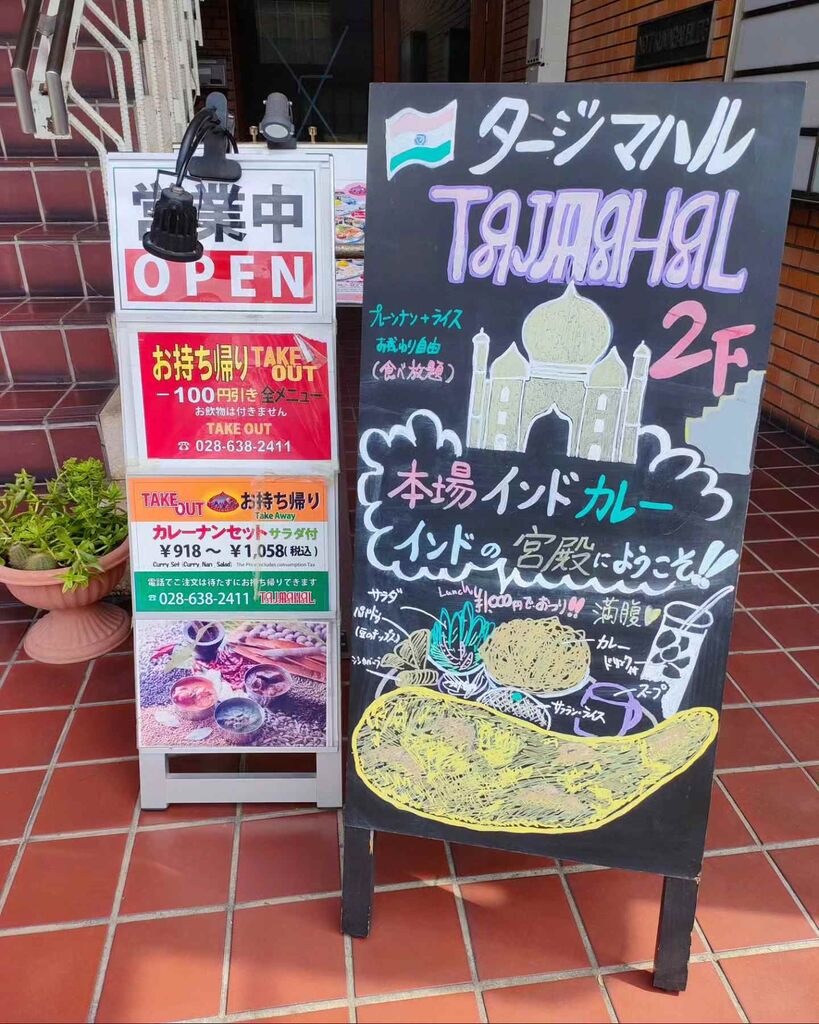 営業中
OPEN
お持ち帰り TAKE OUT
－100円引き 全メニュー
お飲物は付きません
TAKE OUT
☎ 028-638-2411
TAKE OUT お持ち帰り
Take Away
カレーナンセット サラダ付
¥918～¥1,058(税込)
Curry Set (Curry, Nan, Salad) The Price includes consumption Tax
電話でご注文は待たずにお持ち帰りできます
☎ 028-638-2411 TAJMAHAL
タージマハル
TAJMAHAL
2F
プレーンナン+ライス
おかわり自由
(食べ放題)
本場インドカレー
インドの宮殿にようこそ!!
Lunch
満腹
サラダ
カレー
スープ
サフラン・ライス